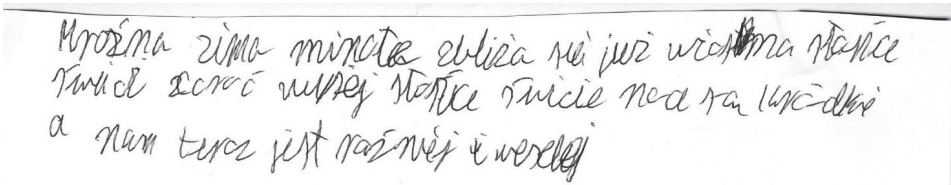 Mroźna zima minęła zbliża się już wiosna słońce
świeci coraz wyżej słońce świcie noce są krótkie
a nam teraz jest raźniej i weselej